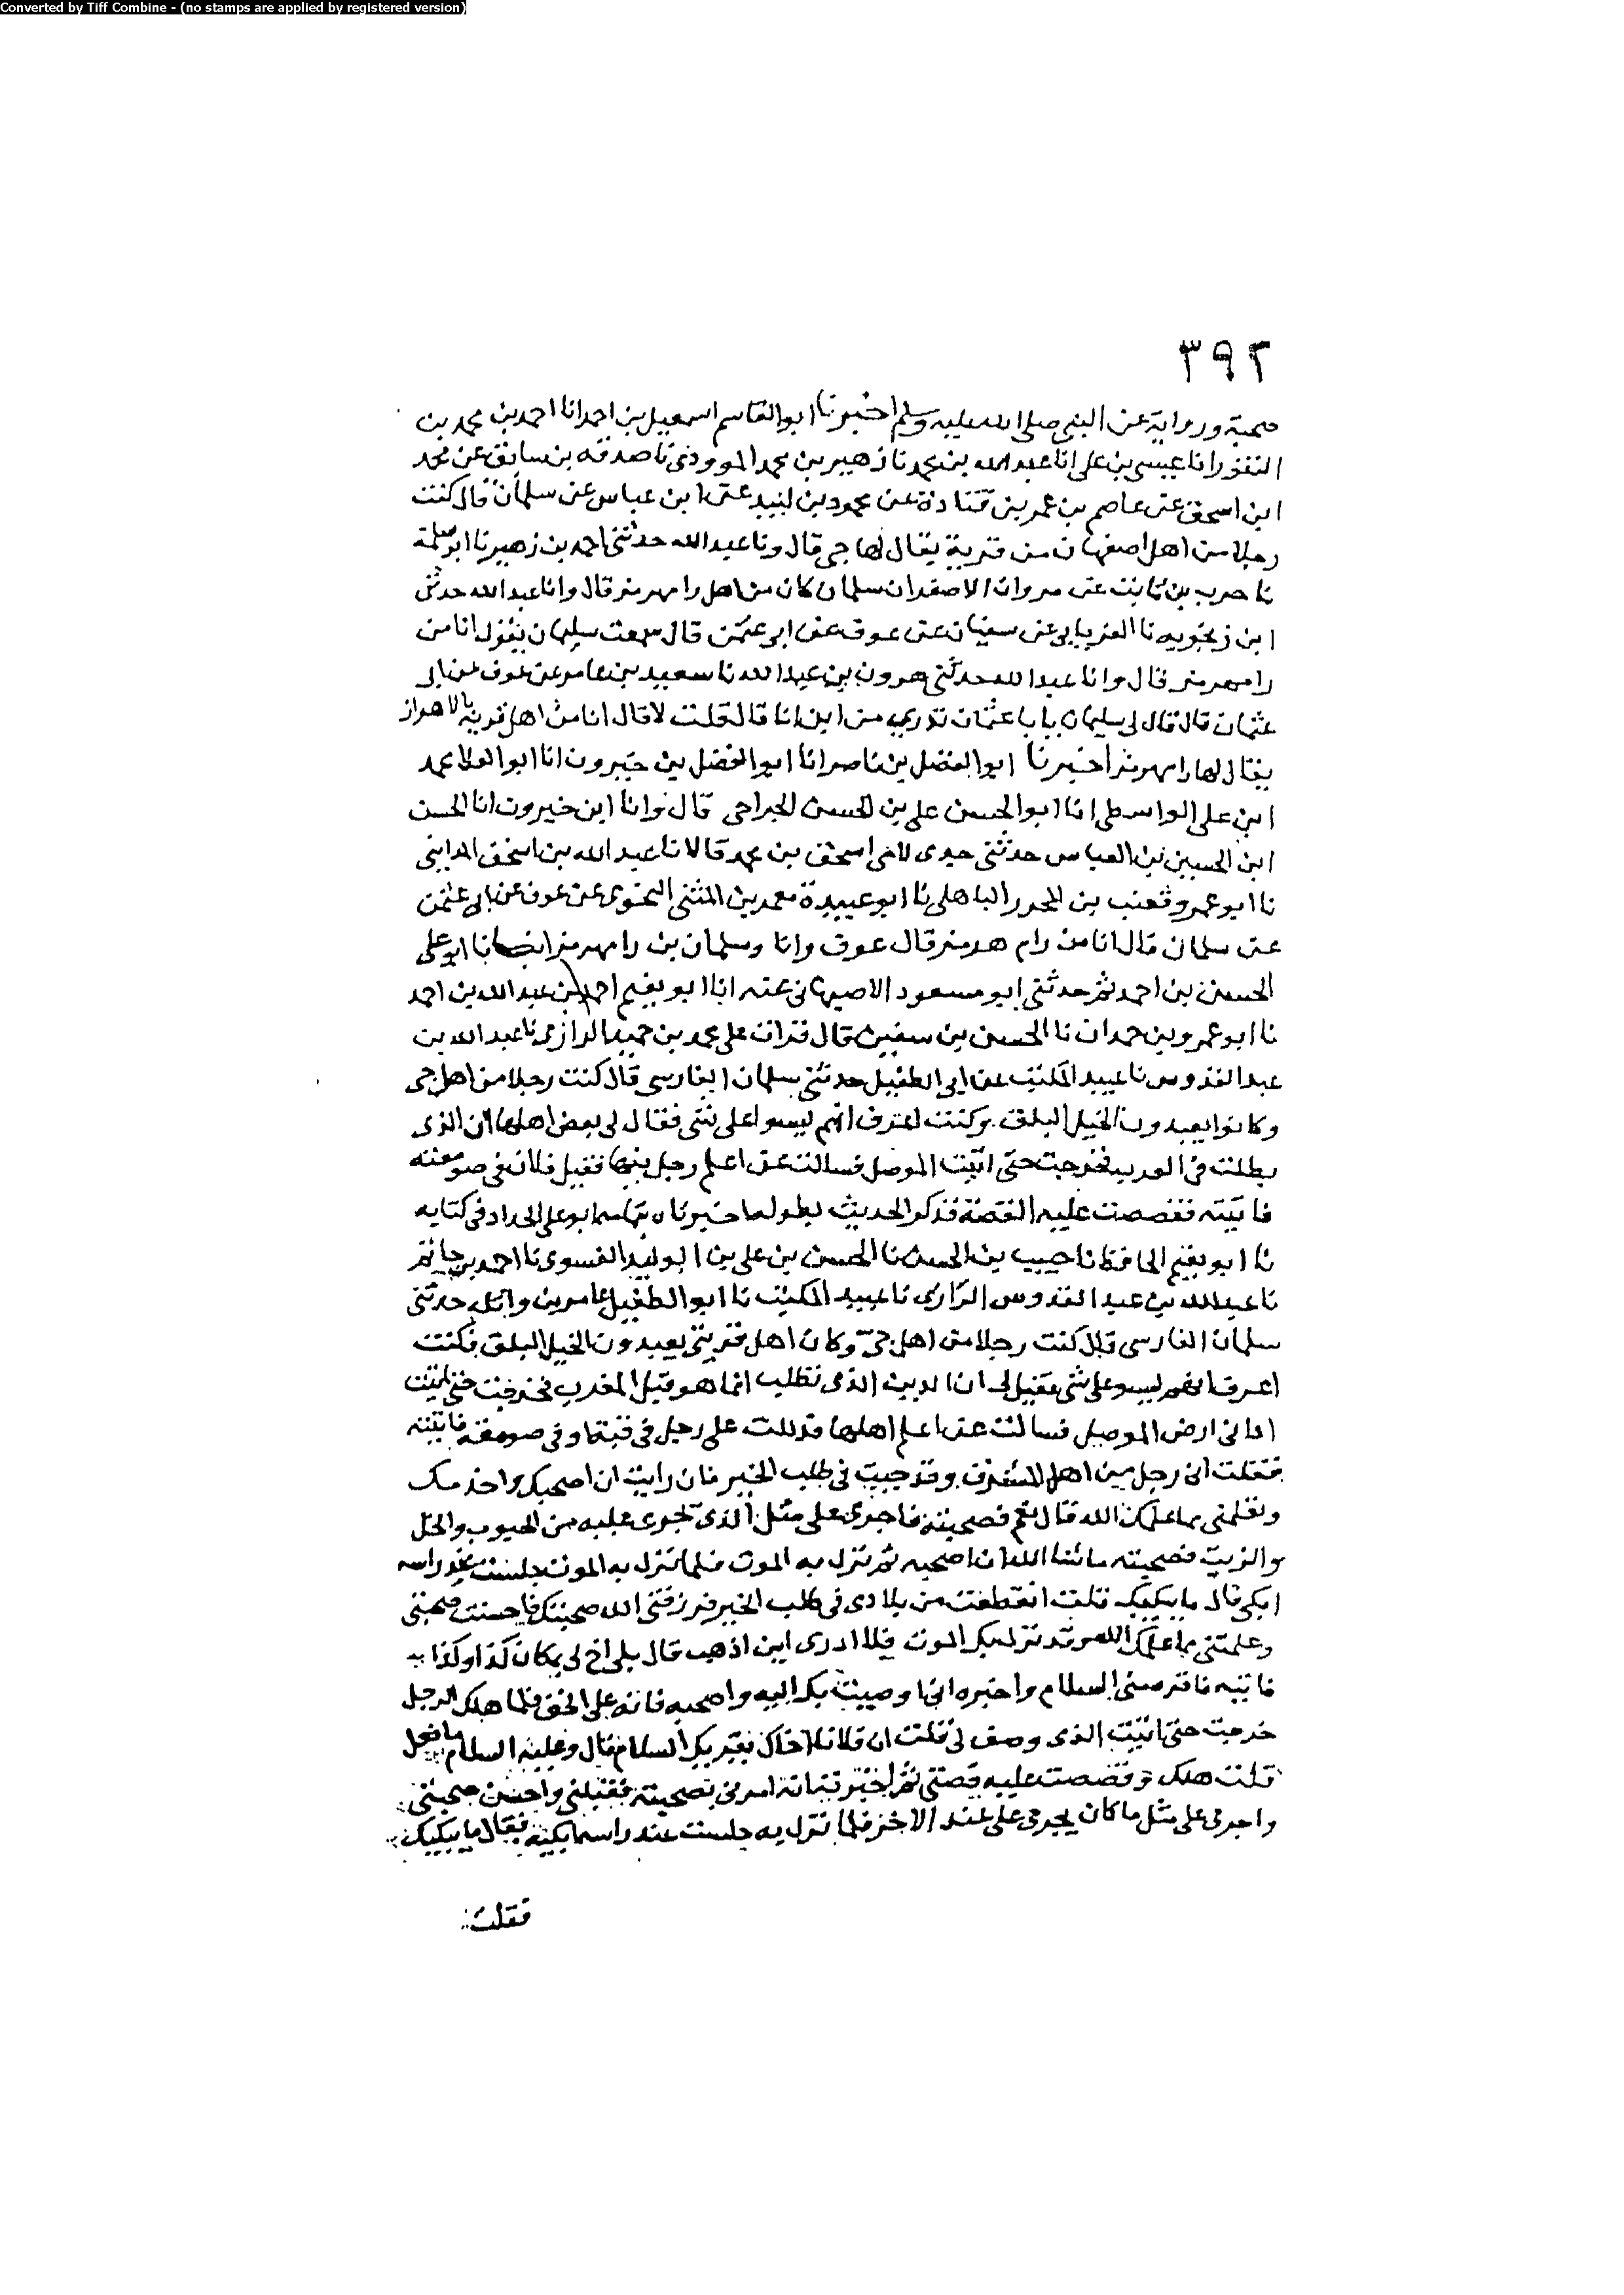 Converted by Tiff Combine - (no stamps are applied by registered version)
٣٩٢
صحبة ورواية عن النبي صلى الله عليه وسلم اخبرنا ابو القاسم اسمعيل بن احمد انا احمد بن محمد بن
النقور انا عيسى بن على انا عبد الله بن محمد نا زهير بن محمد المروزي نا صدقه بن سابق عن محمد
ابن اسحق عن عاصم بن عمر بن قتادة عن محمود بن لبيد عن ابن عباس عن سلمان قال كنت
رجلا من اهل اصفهان من قرية يقال لها جى قال ونا عبد الله حدثنى احمد بن زهير نا ابو سلمة
نا حرب بن ثابت عن مروان الاصفر ان سلمان كان من اهل رامهرمز قال وانا عبد الله حدثنى
ابن زنجويه نا الفريابى عن سفيان عن عوف عن ابى عثمن قال سمعت سليمان يقول انا من
رامهرمز قال وانا عبد الله حدثنى هرون بن عبد الله نا سعيد بن عامر عن عوف عن ابى
عثمان قال قال لى سليمان يا با عثمان تدرى من اين انا قال قلت لا قال انا من اهل قرية بالاهواز
يقال لها رامهرمز اخبرنا ابو الفضل بن ناصر انا ابو الفضل بن خيرون انا ابو العلا محمد
ابن على الواسطى انا ابو الحسن على بن الحسن الجراحى قال وانا ابن خيرون انا الحسن
ابن الحسين بن العباس حدثنى جدى لامى اسحق بن محمد قالا نا عبد الله بن اسحق المداينى
نا ابو عمرو قعنب بن المحرر الباهلى نا ابو عبيدة معمر بن المثنى النحوى عن عوف عن ابى عثمن
عن سلمان قال انا من رام هرمز قال عوف وانا وسلمان بن رامهرمز انبانا ابو على
الحسن بن احمد ثم حدثنى ابو مسعود الاصبهانى عنه انا ابو نعيم احمد بن عبد الله بن احمد
نا ابو عمرو بن حمدان نا الحسن بن سفين قال قرات على محمد بن حميد الرازى نا عبد الله بن
عبد القدوس نا عبيد المكتب عن ابى الطفيل حدثنى سلمان الفارسى قال كنت رجلا من اهل جى
وكانوا يعبدون الخيل البلق وكنت اعرف انهم ليسوا على شى فقال لى بعض اهلها ان الذى
يطلب في المغرب فخرجت حتى اتيت الموصل فسالت عن اعلم رجل بها فقيل فلان فى صومعته
فاتيته فقصصت عليه القصة فذكر الحديث بطوله اخبرناه بتمامه ابو على الحداد فى كتابه
نا ابو نعيم الحافظ نا حبيب بن الحسن نا الحسن بن على بن الوليد الفسوى نا احمد بن حاتم
نا عبد الله بن عبد القدوس الرازى نا عبيد المكتب نا ابو الطفيل عامر بن واثله حدثنى
سلمان الفارسى قال كنت رجلا من اهل جى وكان اهل قريتى يعبدون الخيل البلق فكنت
اعرف انهم ليسو على شى فقيل لى ان الدين الذى تطلب انما هو قبل المغرب فخرجت حتى اتيت
ادانى ارض الموصل فسالت عن اعلم اهلها فدللت على رجل فى قبة او فى صومعة فاتيته
فقلت انى رجل من اهل المشرق وقد جيت فى طلب الخير فان رايت ان اصحبك واخدمك
وتعلمنى مما علمك الله قال نعم فصحبته فاجرى على مثل الذى يجرى عليه من الحبوب والخل
والزيت فصحبته ما شا الله ان اصحبه ثم نزل به الموت فلما نزل به الموت جلست عند راسه
ابكى قال ما يبكيك قلت انقطعت من بلادى فى طلب الخير فرزقنى الله صحبتك فاحسنت صحبتى
وعلمتنى مما علمك الله وقد نزل بك الموت فلا ادرى اين اذهب قال بلى اخ لى بمكان كذا وكذا
فاتيه فاقره منى السلام واخبره انى اوصيت بك اليه واصحبه فانه على الحق فلما هلك الرجل
خرجت حتى اتيت الذى وصف لى قلت ان فلانا اخاك يقريك السلام قال وعليه السلام ما فعل
قلت هلك وقصصت عليه قصتى ثم اخبرته انه امرنى بصحبته فقبلنى واحسن صحبتى
واجرى على مثل ما كان يجرى على عند الاخر فلما نزل به جلست عند راسه ابكيه فقال ما يبكيك
فقلت